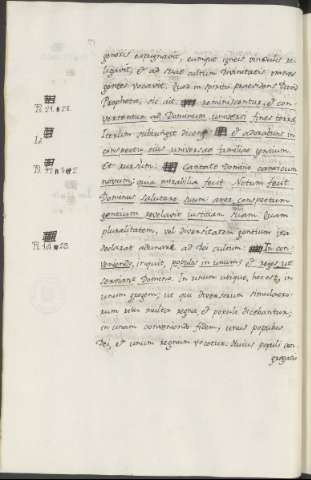 generis expugnavit, eumque igneis vinculis re-
ligavit, et ad suae cultum divinitatis omnes
gentes vocavit. Quod in spiritu praevidens David
Propheta, sic ait: reminiscentur, et con-
Ps. 21. 28.
vertentur ad Dominum universi fines terrae
Iterum subiungit dicens: et adorabunt in
conspectu eius universae familiae gentium
Et rursum: Cantate Domino canticum
novum: quia mirabilia fecit. Notum fecit
Dominus salutare suum ante conspectum
gentium revelavit iustitiam suam. Quam
pluralitatem, vel diversitatem gentium ita
declarat adunatam ad dei cultum: In con-
veniendo, inquit, populos in unum et reges ut
serviant Domino. In unum utique, hoc est, in
unum gregem; ut qui diversorum simulacro-
rum multa regna, et populi dicebantur;
in unam conveniendo fidem, unus populus
Dei, et unum regnum vocetur. Huius populi con-
gregatio